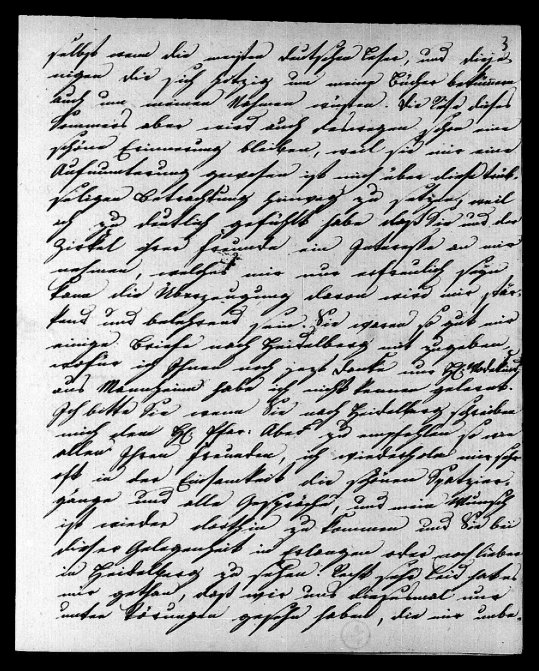 3
selbst wenn die meisten deutschen Leser, und dieje-
nigen die sich hitzig um meine Bücher bekümmern
auch um meinen Nahmen wüsten. Die Tage dieses
Sommers aber wird auch deswegen schon eine
schöne Erinnerung bleiben, weil sie mir eine
Aufmunterung gewesen ist mich über diese trüb-
seligen Betrachtung hinweg zu setzen, weil
ich zu deutlich gefühlt habe daß Sie und der
Zirkel ihrer Freunde ein Interesse an mir
nehmen, welches mir nur erfreulich seyn
kann die Überzeugung davon wird mir stär-
kend und belehrend sein. Sie waren so gut mir
einige Briefe nach Heidelberg mit zugeben
wofür ich Ihnen noch jezt danke nur H.
aus Mannheim habe ich nicht kennen gelernt.
Ich bitte Sie wenn Sie nach Heidelberg schreiben
mich dem H. Pfar. Abegg zu empfehlen so wie
allen Ihren Freunden, ich wiederhole mir sehr
oft in der Einsamkeit die schönen Spatzier-
gänge und alle Gespräche, und mein Wunsch
ist wieder dorthin zu kommen und Sie bei
dieser Gelegenheit in Erlangen oder noch lieber
in Heidelberg zu sehen. Recht sehr leid hat es
mir gethan, daß wir uns diesesmal nur
unter Störungen gesehn haben, die mir unbe-